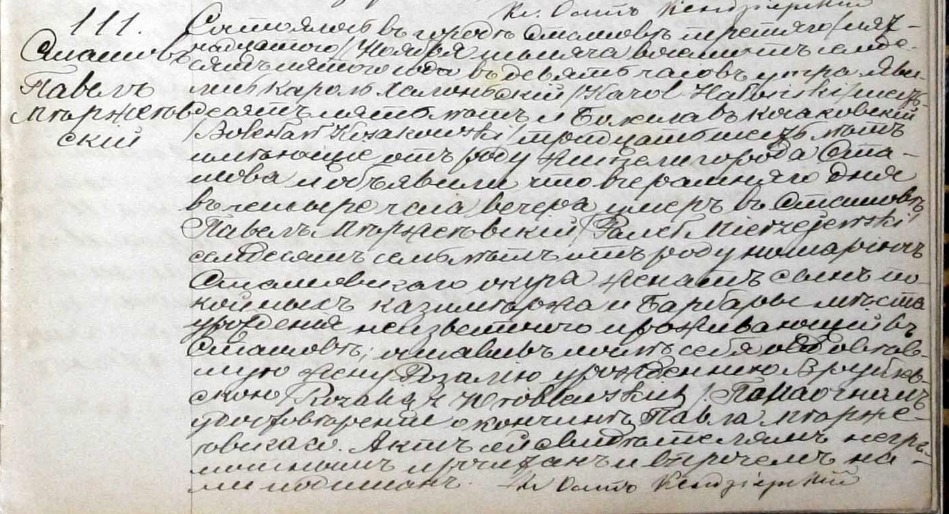 Кс. Осипъ Кендзерскій
111.
Сташовъ
Павелъ
Мѣржеѥв
скій
Состоялось въ городѣ Сташовѣ третяго /пят-
надцатого/ Ноября тысяча восемсотъ семде-
сятъ пятого года въ девять часовъ утра. Яви-
лись Кароль Халоньскій /Karol /
десятъ пять лѣтъ и Болеслав Козаковскій
/Bolesław Kozakowski/ тридцать шесть лѣтъ
имѣющіе отъ роду жители города Ста-
шова и объявили что вчерашняго дня
въ четыре часа вечера умеръ въ Сташовѣ
Павелъ Мѣржеевскій /Paweł Mierzejewski
семдесятъ семь лѣтъ отъ роду
Сташовскаго округа женатъ сынъ по-
койныхъ Казимѣржа и Барбары мѣста
урождения неизвестного проживающій въ
Сташовѣ, оставивъ послѣ себя овдовѣв-
шую жену Розалію урожденную Врублев-
скою /Rozalja z Wroblewskich/. По наочномъ
удостовѣреніи о кончинѣ Павла Мѣрже-
евскаго. Актъ сей свидѣтелямъ негра-
мотнымъ прочитанъ и впрочемъ на-
ми подписанъ.
Кс. Осипъ Кендзерскій